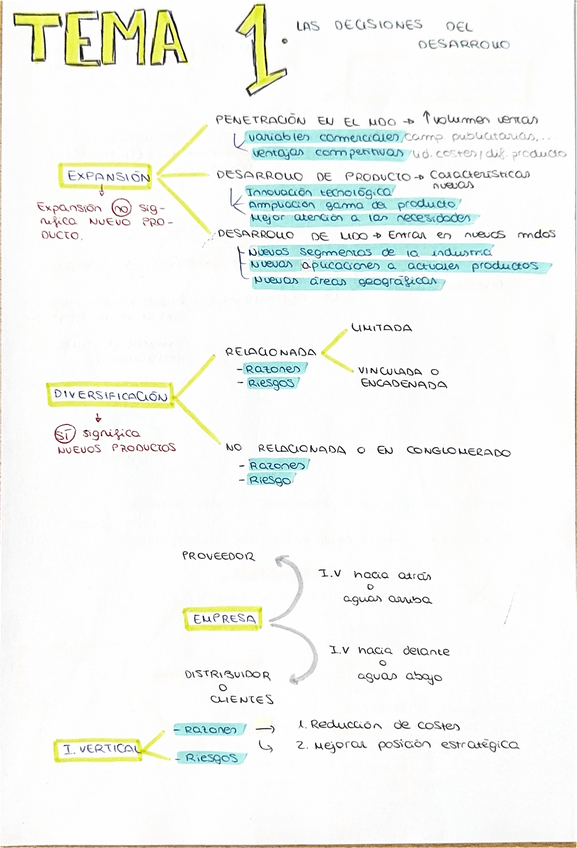 TEMA 1.
LAS DECISIONES DEL
DESARROLLO
PENETRACIÓN EN EL MDO → ↑ volumen ventas
variables comerciales, camp publicitarias,...
ventajas competitivas, costes / dif. producto
EXPANSIÓN
Expansión no sig-
nifica NUEVO PRO-
DUCTO.
DESARROLLO DE PRODUCTO → Características
nuevas
Innovación tecnológica
Ampliación gama del producto
Mejor atención a las necesidades
DESARROLLO DE MDO → Entrar en nuevos mdos
Nuevos segmentos de la industria
Nuevas aplicaciones a actuales productos
Nuevas áreas geográficas
DIVERSIFICACIÓN
SÍ significa
NUEVOS PRODUCTOS
RELACIONADA
- Razones
- Riesgos
LIMITADA
VINCULADA O
ENCADENADA
NO RELACIONADA O EN CONGLOMERADO
- Razones
- Riesgo
PROVEEDOR
I.V hacia atrás
o
aguas arriba
EMPRESA
I.V hacia delante
o
aguas abajo
DISTRIBUIDOR
O
CLIENTES
I. VERTICAL
- Razones → 1. Reducción de costes
↳ 2. Mejorar posición estratégica
- Riesgos